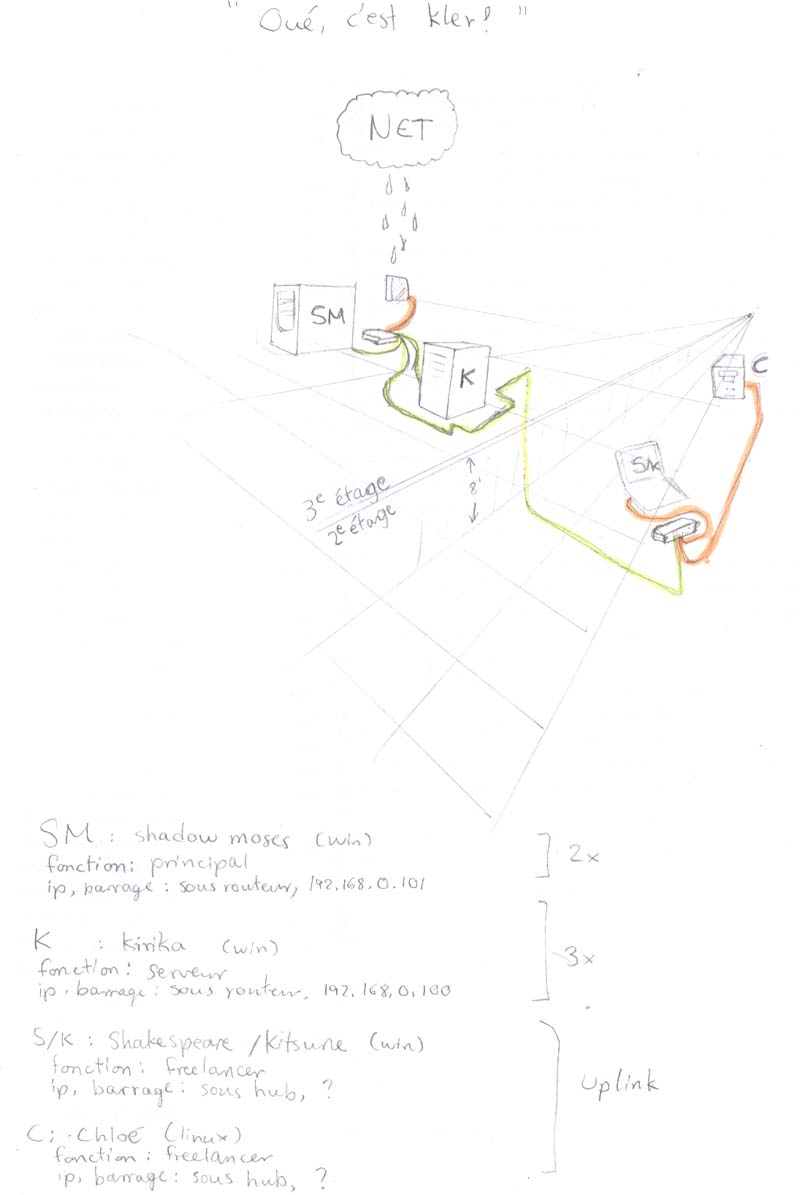 " Oué, c'est kler! "
NET
SM
K
C
S/K
3e étage
2e étage
8'
SM : shadow moses (win)
fonction: principal
ip, barrage : sous routeur, 192.168.0.101
2x
K : kirika (win)
fonction: serveur
ip, barrage : sous routeur, 192.168.0.100
3x
S/K : Shakespeare / Kitsune (win)
fonction: freelancer
ip, barrage : sous hub, ?
C: Chloé (linux)
fonction: freelancer
ip, barrage : sous hub, ?
Uplink